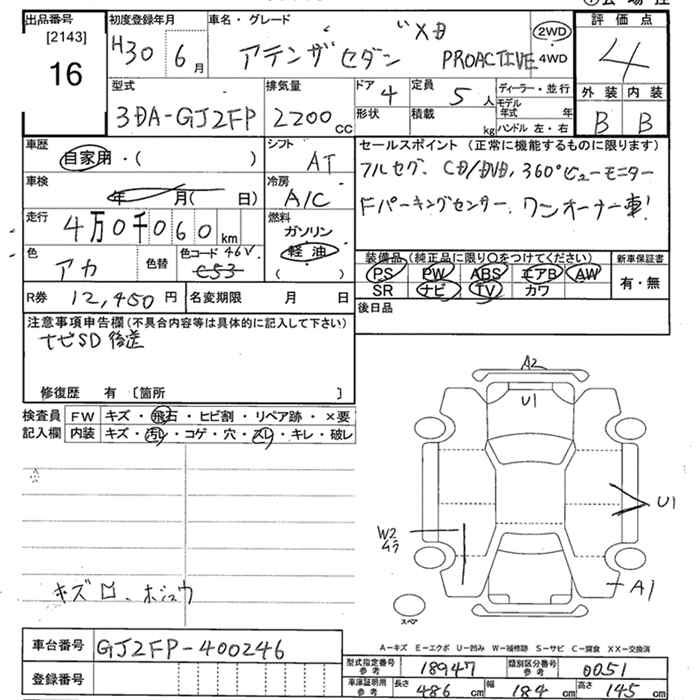 出品番号 [2143] 16
初度登録年月 H30 6月
車名・グレード XD
アテンザセダン PROACTIVE
2WD 4WD
評価点 4
型式 3DA-GJ2FP
排気量 2200cc
ドア 4 形状
定員 5人 積載 kg
ディーラー・並行
モデル年式 年
ハンドル 左・右
外装 内装
B B
車歴 自家用・( )
シフト AT
セールスポイント (正常に機能するものに限ります)
フルセグ、CD/DVD、360°ビューモニター
Fパーキングセンサー、ワンオーナー車!
車検 年 月( 日)
冷房 A/C
走行 4万0千060km
燃料 ガソリン
軽油
( )
色 アカ 色替 色コード 46V
C53
装備品 (純正品に限り〇をつけてください) 新車保証書
PS PW ABS エアB AW 有・無
SR ナビ TV カワ
R券 12,450円 名変期限 月 日
後日品
注意事項申告欄 (不具合内容等は具体的に記入して下さい)
ナビSD後送
修復歴 有 〔箇所 〕
検査員 FW キズ・飛石・ヒビ割・リペア跡・×要
記入欄 内装 キズ・汚レ・コゲ・穴・スレ・キレ・破レ
キズ
A2
U1
U1
W2
A1
スペア
A-キズ E-エクボ U-凹み W-補修跡 S-サビ C-腐食 XX-交換済
車台番号 GJ2FP-400246
登録番号
型式指定番号 参考 18947 類別区分番号 参考 0051
車庫証明用 参考 長さ 486cm 幅 184cm 高さ 145cm